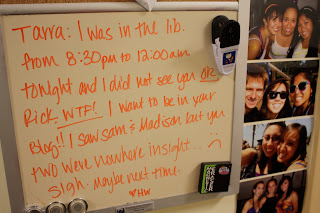 Tarra: I was in the lib.
from 8:30pm to 12:00am
tonight and I did not see you OR
Rick, WTF! I want to be in your
Blog!! I saw sam & Madison but you
two were nowhere insight... :(
sigh. maybe next time.
♥HW